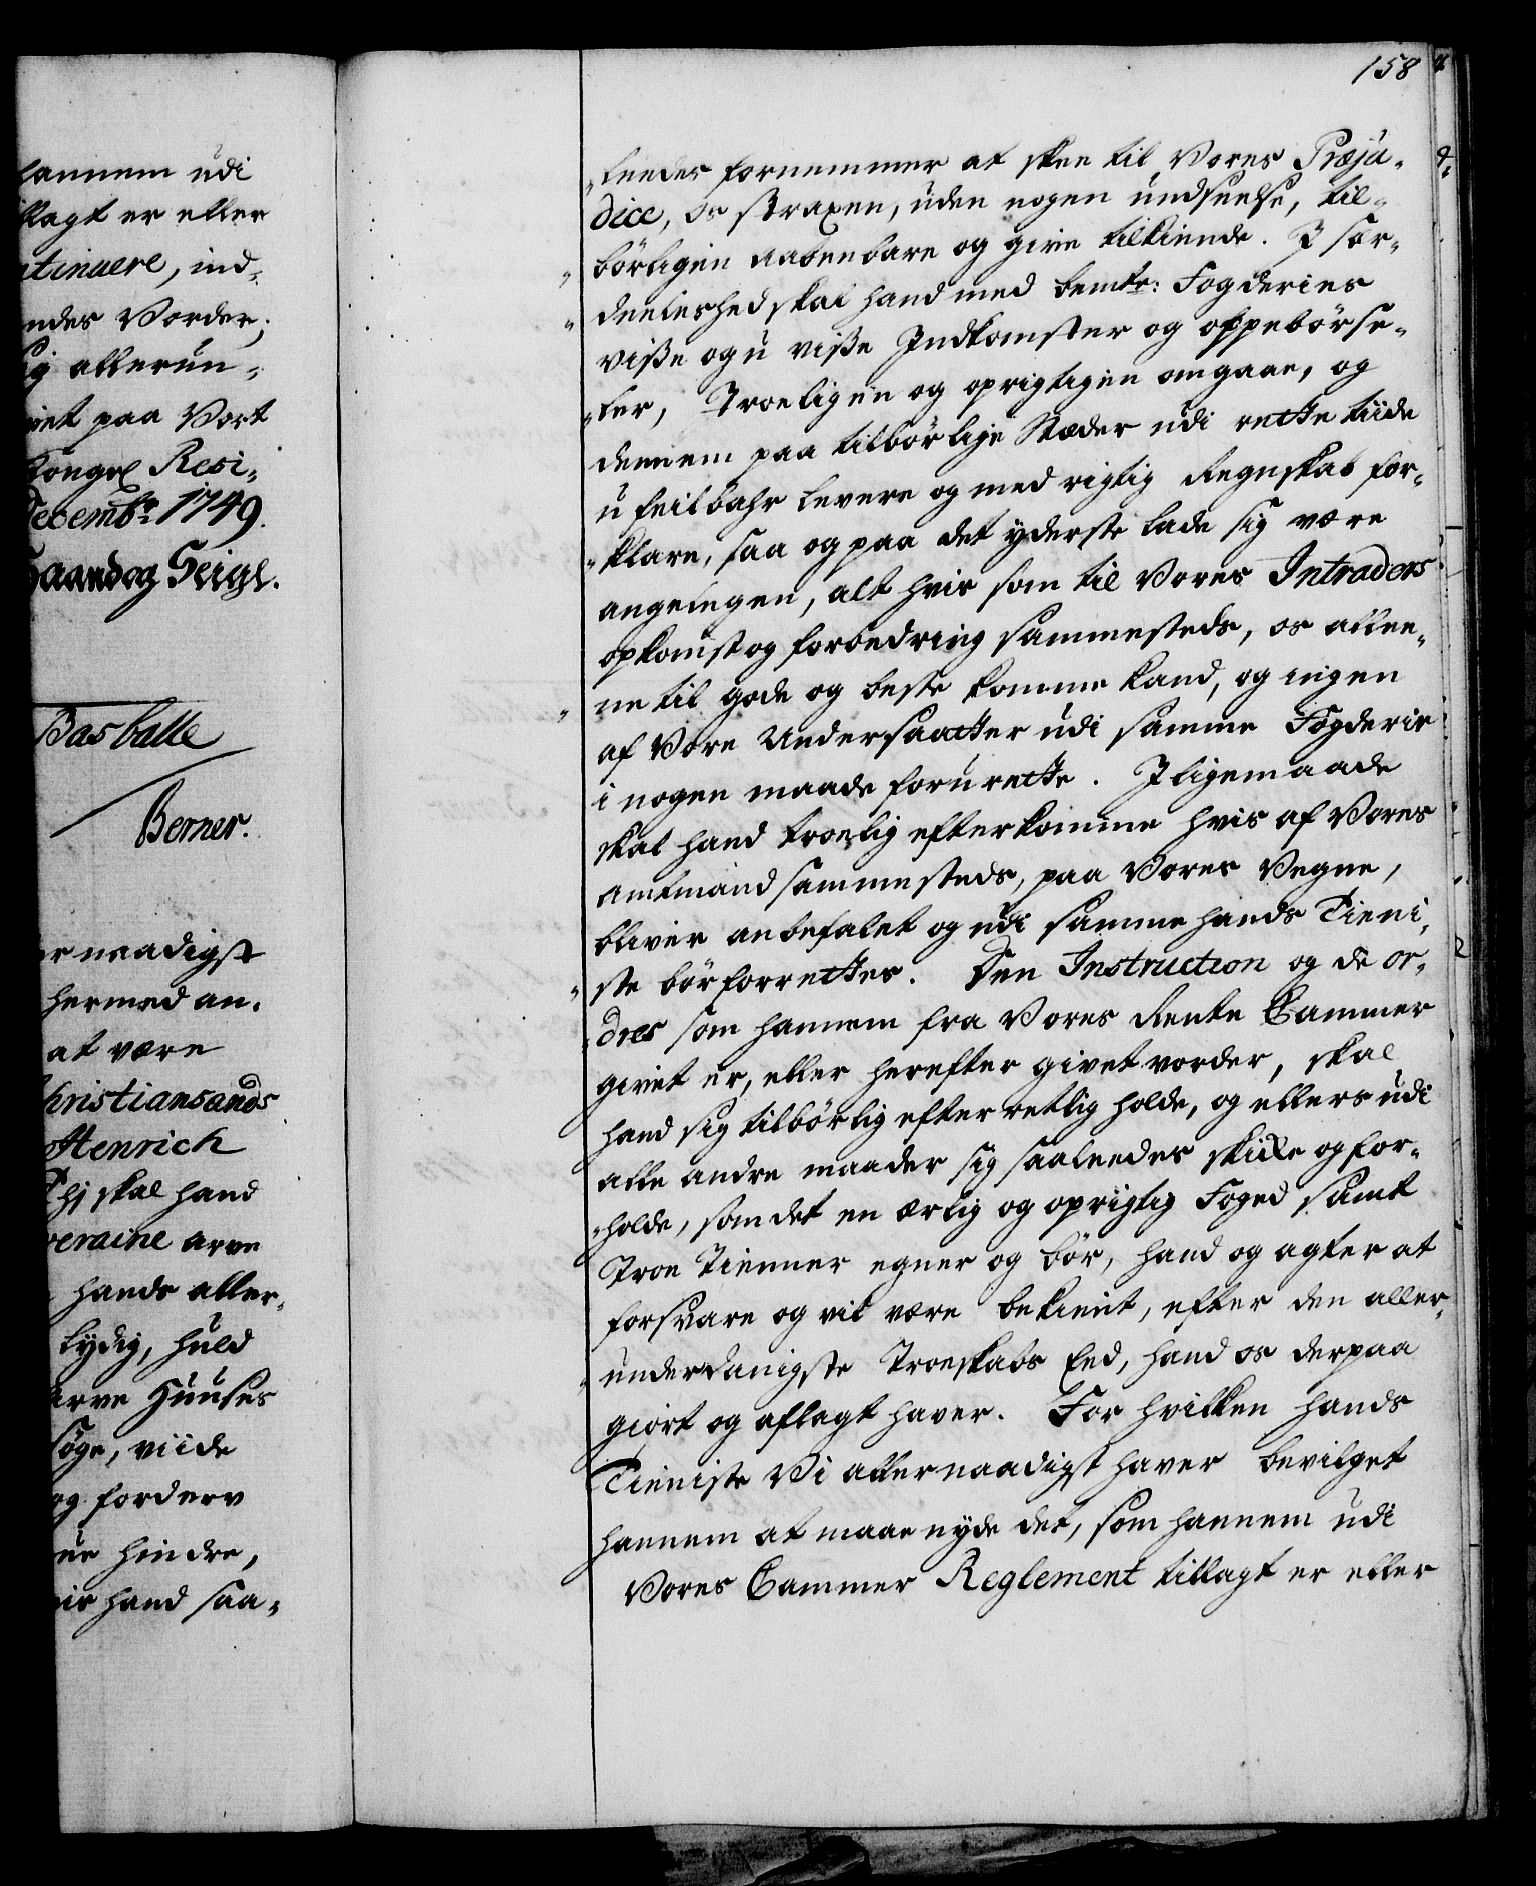 hannem udi
illagt er eller
ntinuere, ind-
ndes Vorder;
Sig allerun-
vet paa Vort
Kongel Resi-
Decembr: 1749.
Haand og Seigl.
Basballe
Berner.
er naadigst
hermed an-
at være
Christiansands
Henrich
Thj skal hand
veraine arve
hands aller-
lydig, huld
arve Huuses
söge, viide
og forderv
ue hindre,
vis hand saa-
158
leedes fornemmer at skee til Vores Præju-
dice, os straxen, uden nogen undseelse, til-
börligen aabenbare og give tilkiende. I sær-
deeleshed skal hand med bemte: Fogderies
visse og u visse Indkomster og oppebörse-
ler, Troeligen og oprigtigen omgaae, og
dennem paa tilbörlige Stæder udi rette tiide
u feilbahr levere og med rigtig Regnskab for-
klare, saa og paa det yderste lade sig være
angelegen, alt hvis som til Vores Intraders
opkomst og forbedring sammesteds, os allee-
ne til gode og beste komme kand, og ingen
af Vore Undersaatter udi samme Fogderie
i nogen maade forurette. I ligemaade
skal hand troelig efterkomme hvis af Vores
Amtmand sammesteds, paa Vores Vegne,
bliver anbefalet og udi samme hands Tieni-
ste bör forrettes. Den Instruction og de or-
dres som hannem fra Vores Rente Cammer
givet er, eller herefter givet vorder, skal
hand sig tilbörlig efterretlig holde, og ellers udi
alle andre maader sig saaleedes skikke og for-
holde, som det en ærlig og oprigtig Foged samt
Troe Tienner egner og bör, hand og agter at
forsvare og vil være bekient, efter den aller-
underdanigste Troeskabs Eed, hand os derpaa
giort og aflagt haver. For hvilken hands
Tieniste Vi allernaadigst haver bevilget
hannem at maae nyde det, som hannem udi
Vores Cammer Reglement tillagt er eller